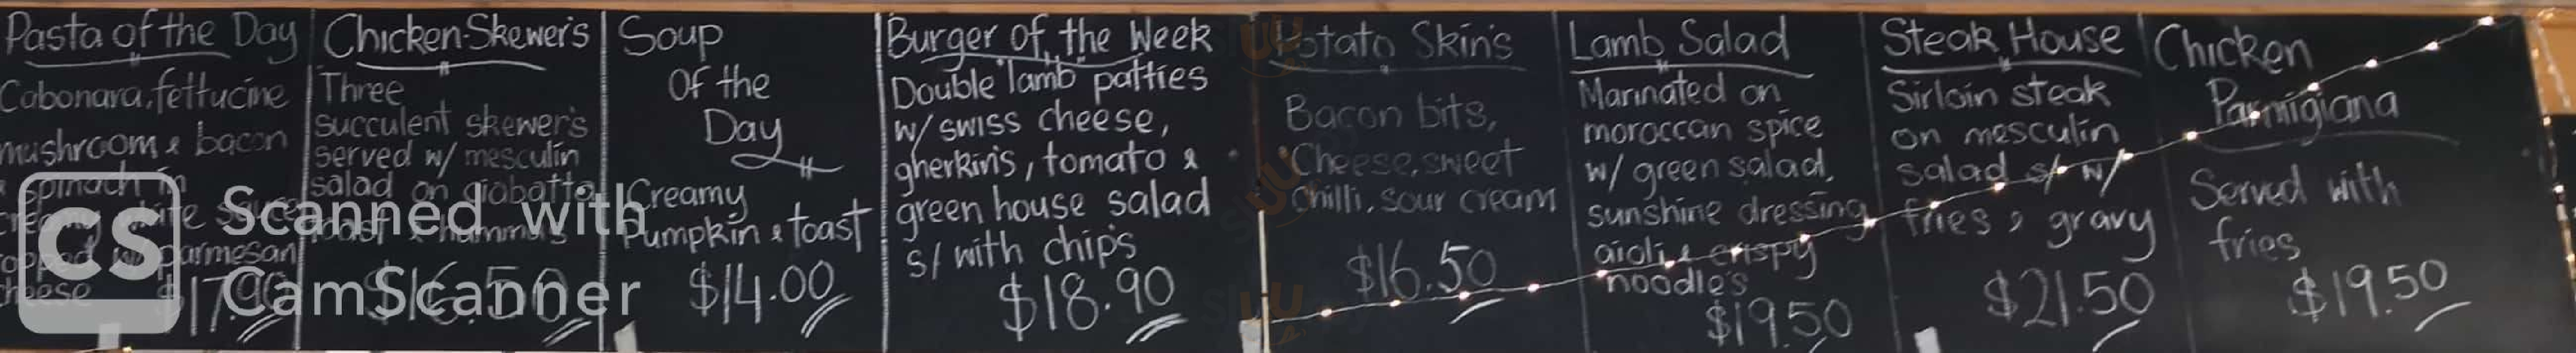 Pasta of the Day
Cabonara, fettucine
mushroom & bacon
& spinach in
creamy white sauce
topped w/ parmesan
cheese
$17.90
Chicken Skewer's
Three
succulent skewer's
served w/ mesculin
salad on giabatta
toast & hammus
$16.50
Soup
Of the
Day
Creamy
Pumpkin & toast
$14.00
Burger of the Week
Double "lamb" patties
w/ swiss cheese,
gherkin's, tomato &
green house salad
s/ with chip's
$18.90
Potato Skin's
Bacon bits,
Cheese, sweet
Chilli, sour cream
$16.50
Lamb Salad
Marinated on
moroccan spice
w/ green salad,
sunshine dressing
aioli & crispy
noodle's
$19.50
Steak House
Sirloin steak
on mesculin
salad s/ w/
fries & gravy
$21.50
Chicken
Parmigiana
Served with
fries
$19.50
CS
Scanned with
CamScanner